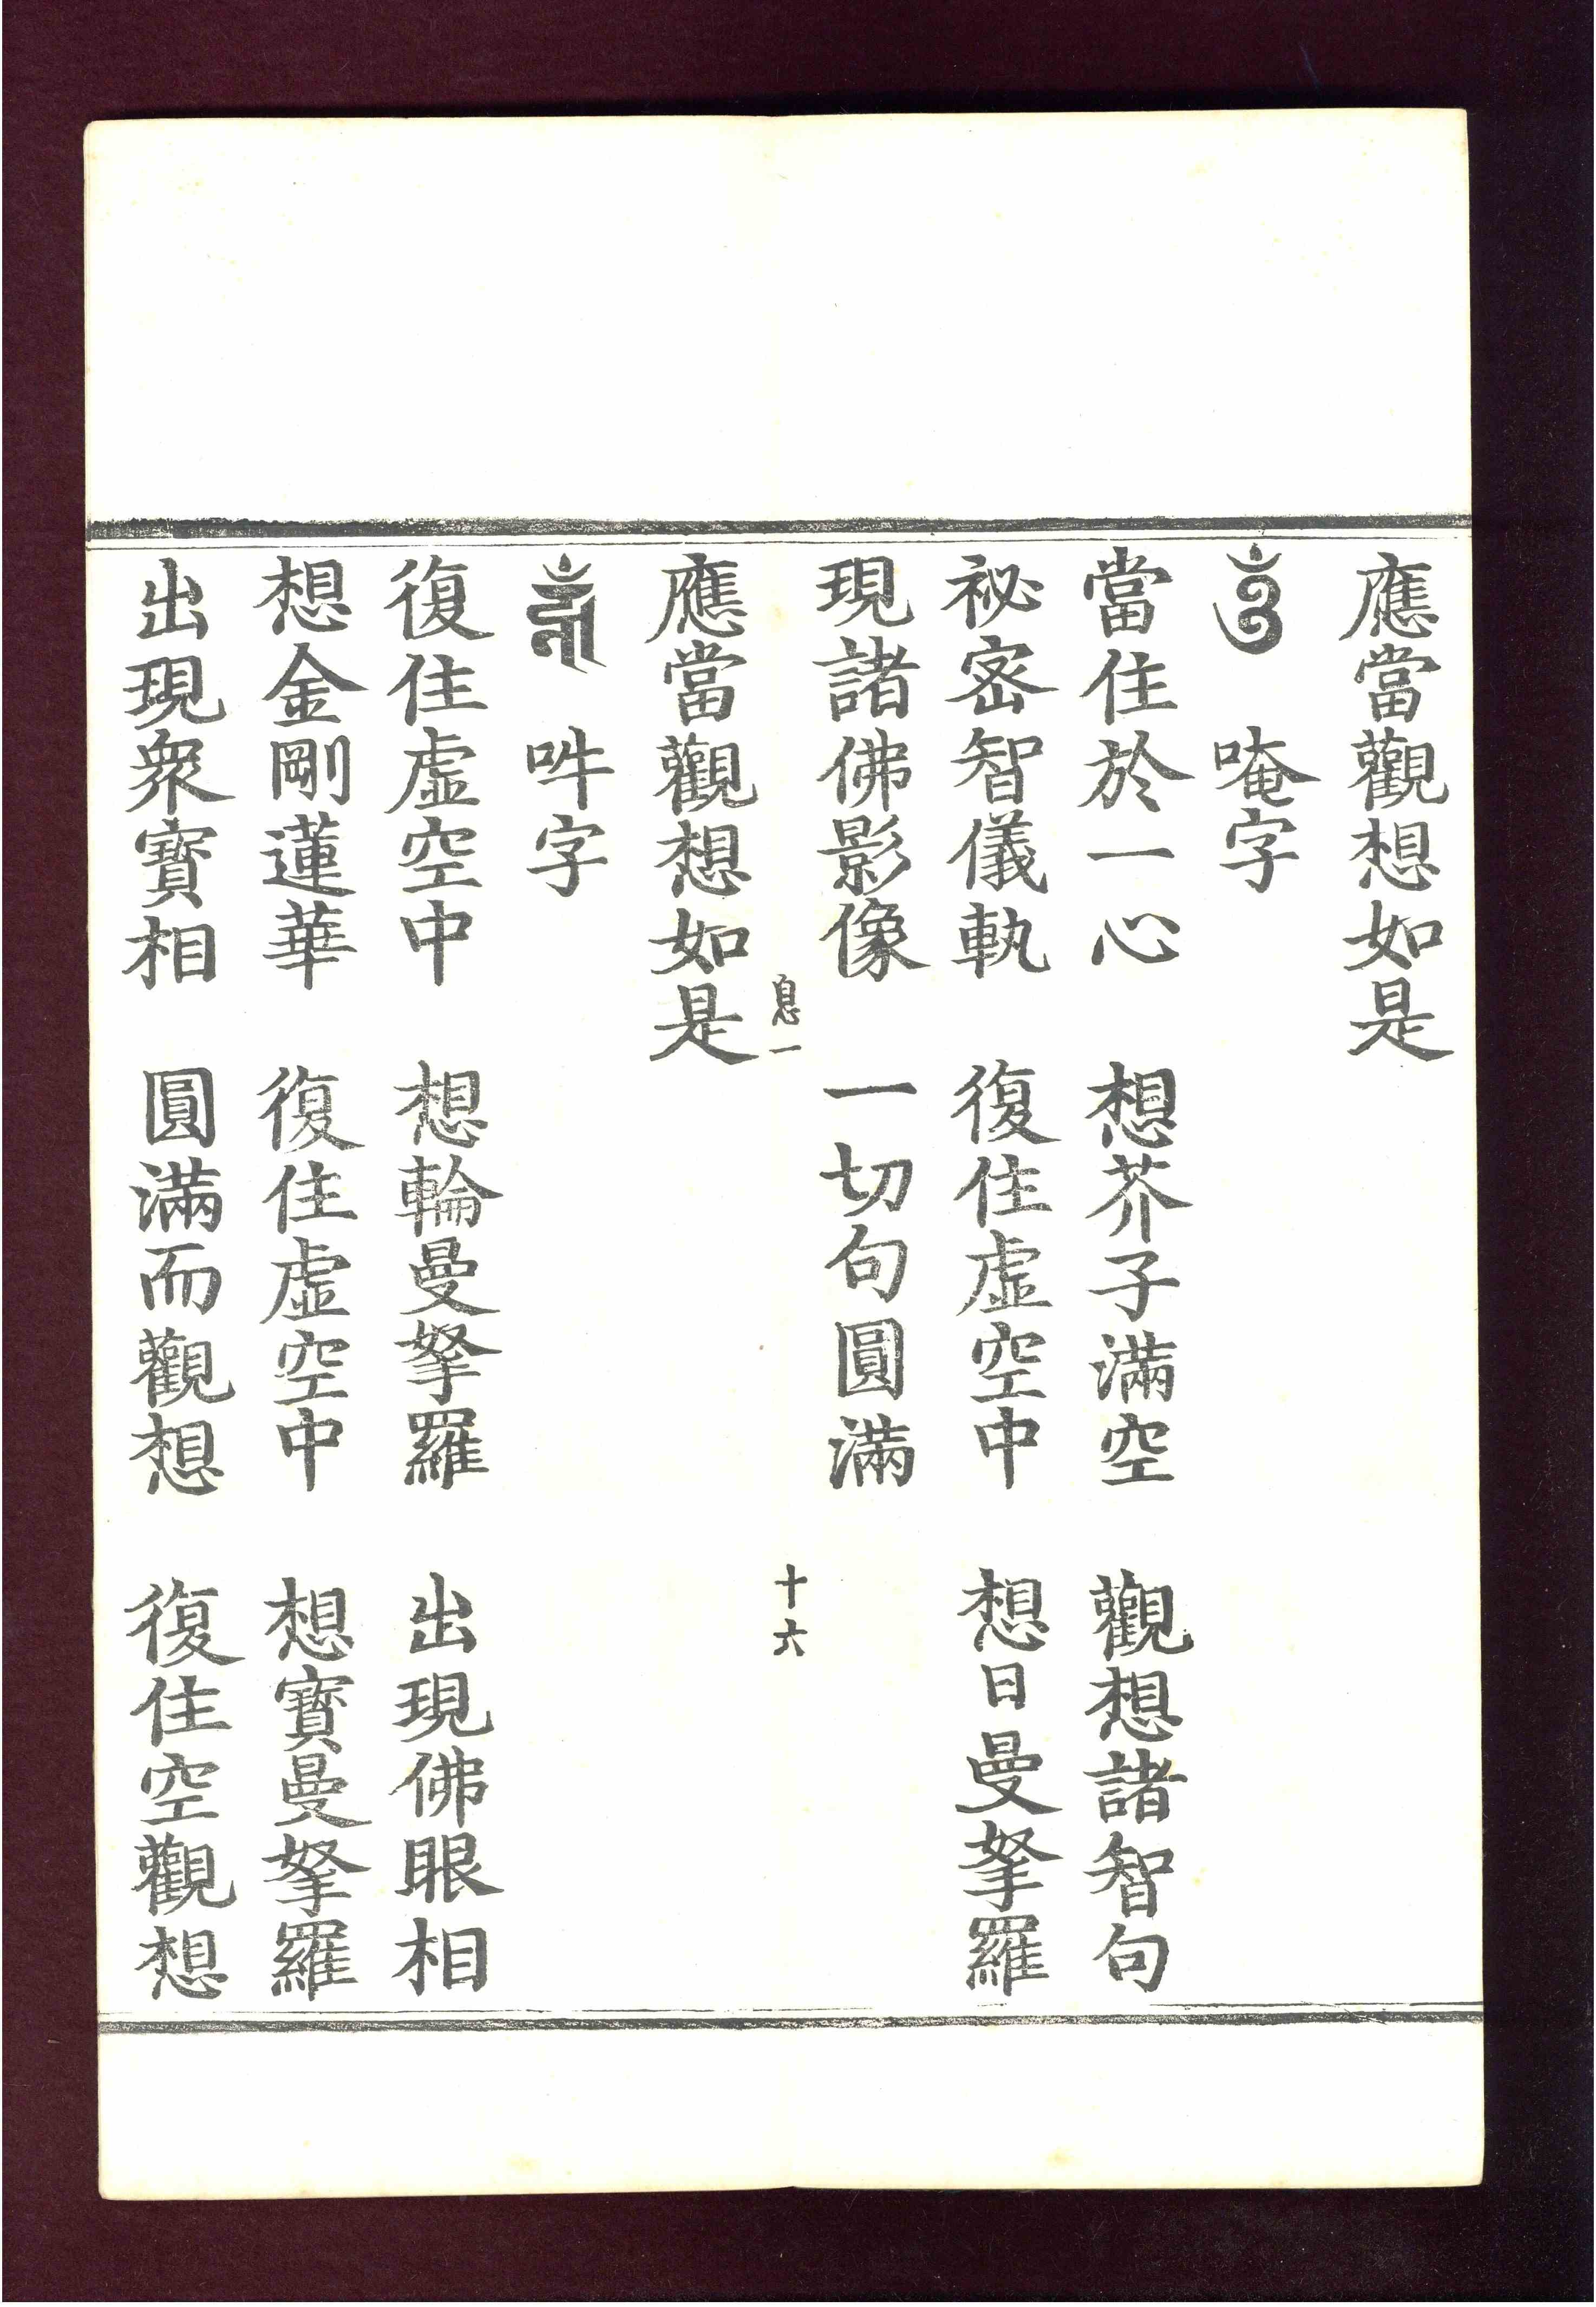 應當觀想如是
ༀ 唵字
當住於一心 想芥子滿空 觀想諸智句
祕密智儀軌 復住虛空中 想日曼拏羅
現諸佛影像 一切句圓滿
息一 十六
應當觀想如是
吽字
復住虛空中 想輪曼拏羅 出現佛眼相
想金剛蓮華 復住虛空中 想寶曼拏羅
出現衆寶相 圓滿而觀想 復住空觀想